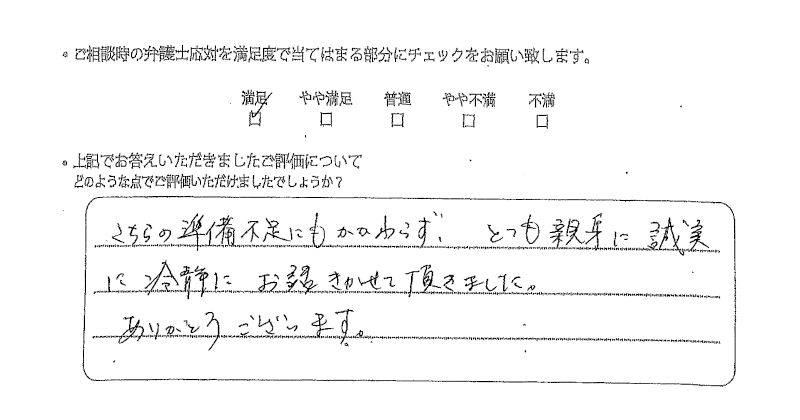 。ご相談時の弁護士応対を満足度で当てはまる部分にチェックをお願い致します。
満足 やや満足 普通 やや不満 不満
☑ □ □ □ □
。上記でお答えいただきましたご評価について
どのような点でご評価いただけましたでしょうか?
こちらの準備不足にもかかわらず、とても親身に誠実
に冷静にお話きかせて頂きました。
ありがとうございます。